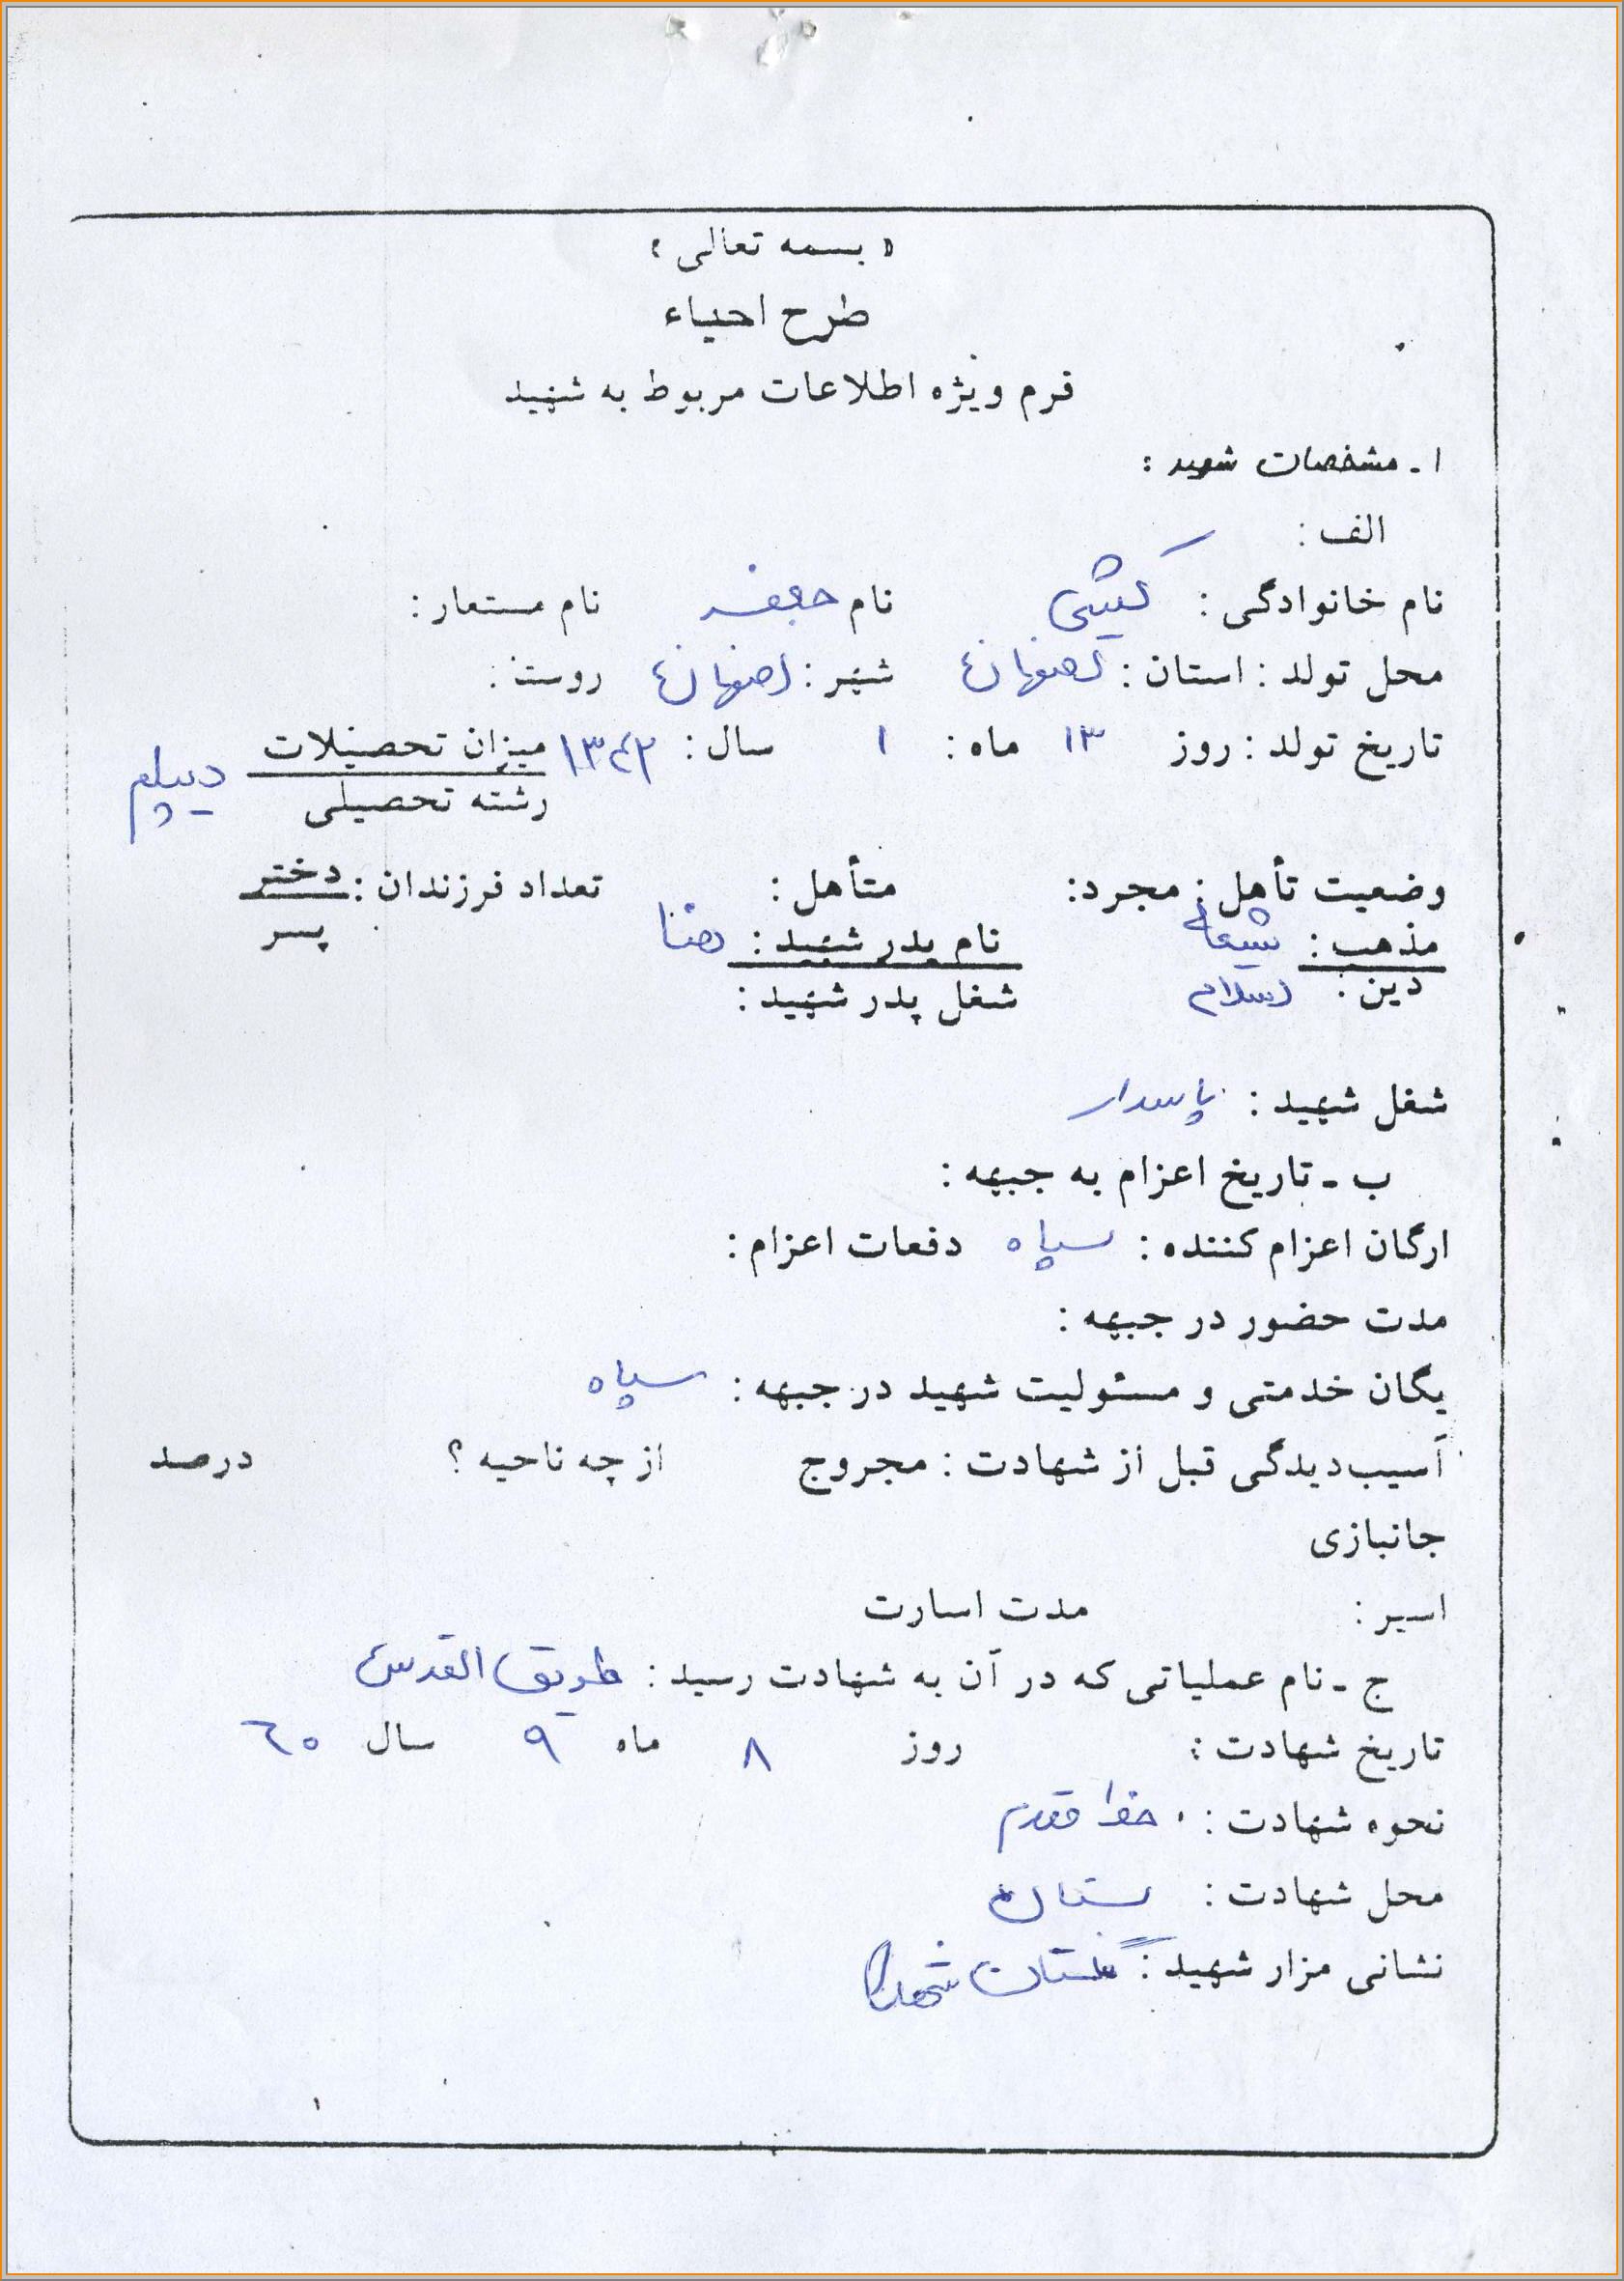 « بسمه تعالی »
طرح احیاء
فرم ویژه اطلاعات مربوط به شهید
۱ـ مشخصات شهید :
الف :
نام خانوادگی : نام جعفر نام مستعار :
محل تولد : استان : اصفهان شهر : اصفهان روستا :
تاریخ تولد : روز ۱۳ ماه : ۱ سال : میزان تحصیلات دیپلم
رشته تحصیلی
وضعیت تأهل : مجرد : متأهل : تعداد فرزندان : دختر
پسر
مذهب : شیعه نام پدر شهید : رضا
دین : اسلام شغل پدر شهید :
شغل شهید : پاسدار
ب ـ تاریخ اعزام به جبهه :
ارگان اعزام کننده : سپاه دفعات اعزام :
مدت حضور در جبهه :
یگان خدمتی و مسئولیت شهید در جبهه : سپاه
آسیب‌دیدگی قبل از شهادت : مجروح از چه ناحیه ؟ درصد
جانبازی
اسیر : مدت اسارت
ج ـ نام عملیاتی که در آن به شهادت رسید : طریق القدس
تاریخ شهادت : روز ۸ ماه ۹ سال ۶۰
نحوه شهادت : خط مقدم
محل شهادت : بستان
نشانی مزار شهید : گلستان شهدا